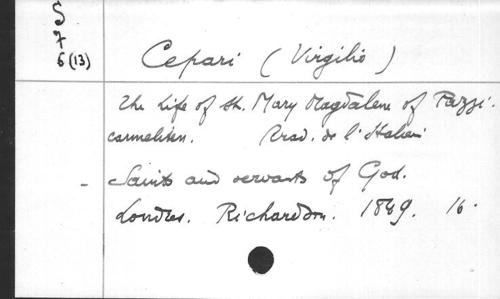 S
7
6 (13)
Cepari (Virgilio)
The Life of St. Mary Magdalene of Pazzi.
carmeliten. Trad. de l'Italien
- Saints and servants of God.
Londres. Richardson. 1849. 16.